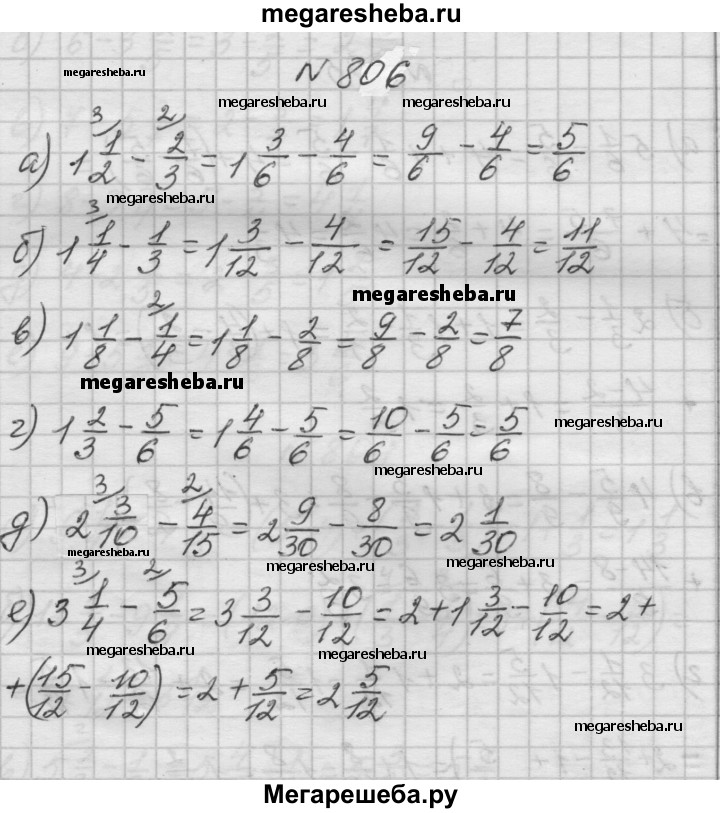 megaresheba.ru
N 806
megaresheba.ru
megaresheba.ru megaresheba.ru
а) 1 1/2 (3/) - 2/3 (2/) = 1 3/6 - 4/6 = 9/6 - 4/6 = 5/6
megaresheba.ru
б) 1 1/4 (3/) - 1/3 = 1 3/12 - 4/12 = 15/12 - 4/12 = 11/12
megaresheba.ru
в) 1 1/8 - 1/4 (2/) = 1 1/8 - 2/8 = 9/8 - 2/8 = 7/8
megaresheba.ru
г) 1 2/3 - 5/6 = 1 4/6 - 5/6 = 10/6 - 5/6 = 5/6
megaresheba.ru
megaresheba.ru
д) 2 3/10 (3/) - 4/15 (2/) = 2 9/30 - 8/30 = 2 1/30
megaresheba.ru
megaresheba.ru
е) 3 1/4 (3/) - 5/6 (2/) = 3 3/12 - 10/12 = 2 + 1 3/12 - 10/12 = 2 +
megaresheba.ru
megaresheba.ru
+ (15/12 - 10/12) = 2 + 5/12 = 2 5/12
megaresheba.ru
Мегарешеба.ру